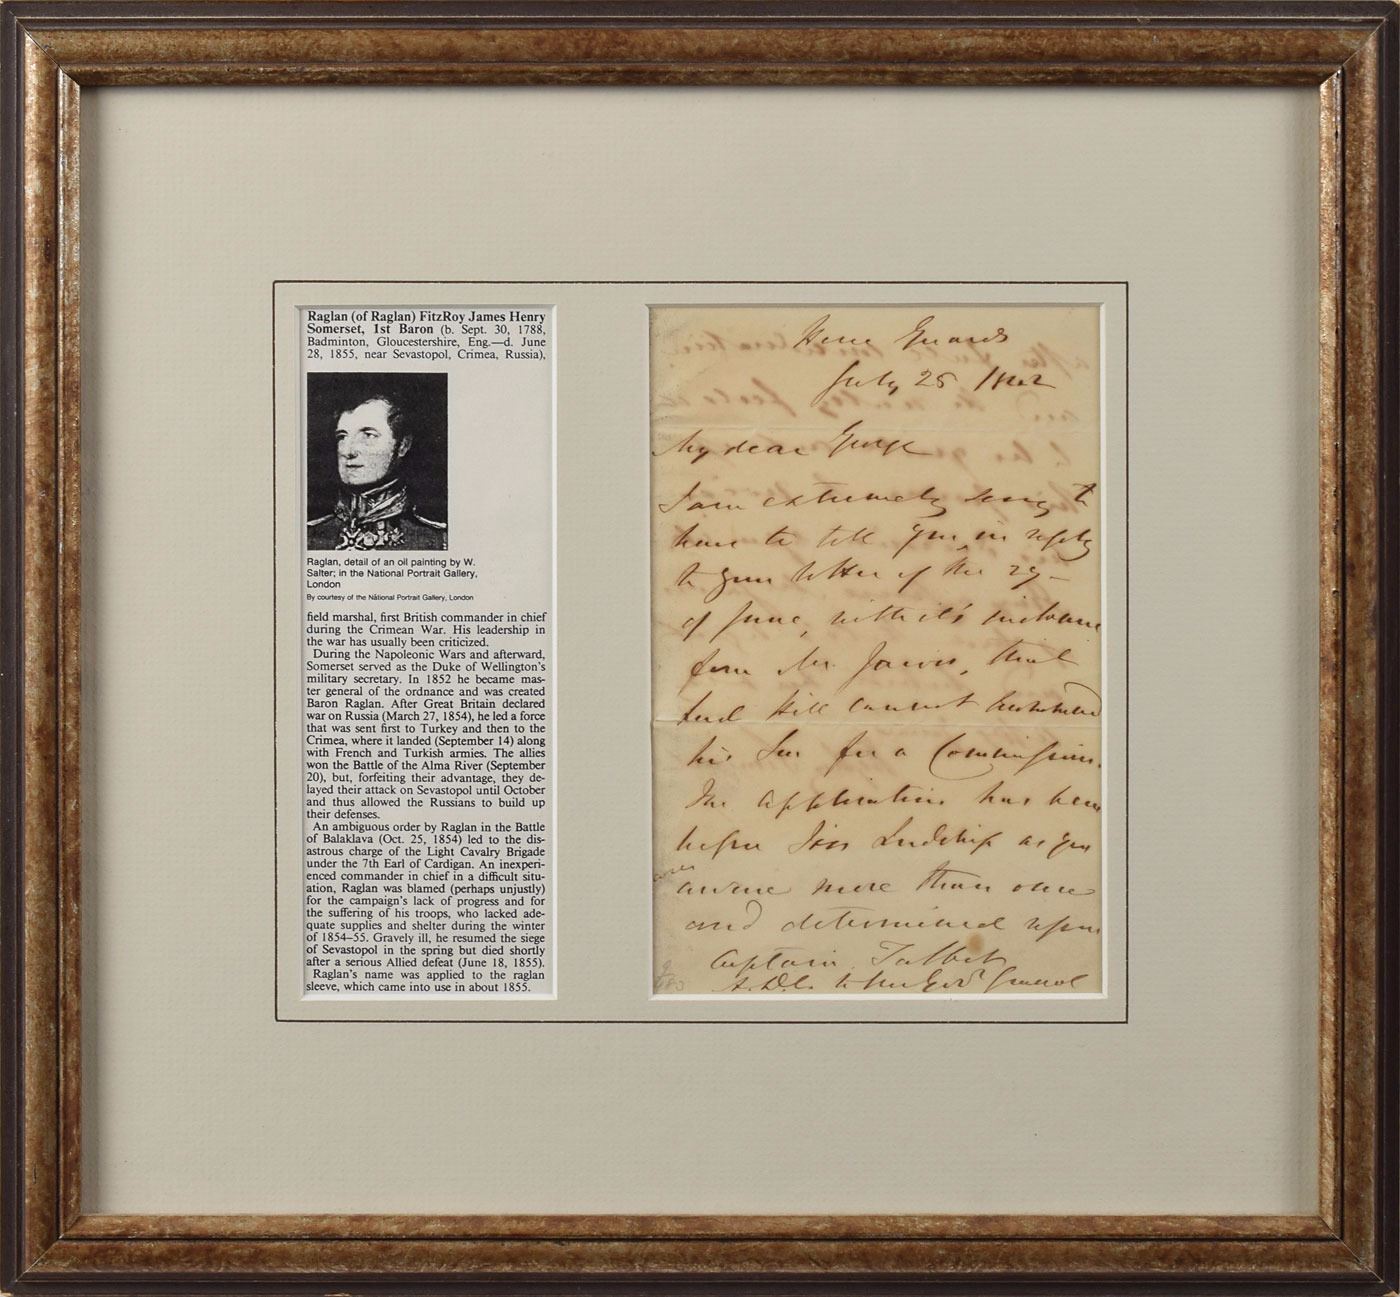 Raglan (of Raglan) FitzRoy James Henry
Somerset, 1st Baron (b. Sept. 30, 1788,
Badminton, Gloucestershire, Eng.—d. June
28, 1855, near Sevastopol, Crimea, Russia),
Raglan, detail of an oil painting by W.
Salter; in the National Portrait Gallery,
London
By courtesy of the National Portrait Gallery, London
field marshal, first British commander in chief
during the Crimean War. His leadership in
the war has usually been criticized.
During the Napoleonic Wars and afterward,
Somerset served as the Duke of Wellington's
military secretary. In 1852 he became mas-
ter general of the ordnance and was created
Baron Raglan. After Great Britain declared
war on Russia (March 27, 1854), he led a force
that was sent first to Turkey and then to the
Crimea, where it landed (September 14) along
with French and Turkish armies. The allies
won the Battle of the Alma River (September
20), but, forfeiting their advantage, they de-
layed their attack on Sevastopol until October
and thus allowed the Russians to build up
their defenses.
An ambiguous order by Raglan in the Battle
of Balaklava (Oct. 25, 1854) led to the dis-
astrous charge of the Light Cavalry Brigade
under the 7th Earl of Cardigan. An inexperi-
enced commander in chief in a difficult situ-
ation, Raglan was blamed (perhaps unjustly)
for the campaign's lack of progress and for
the suffering of his troops, who lacked ade-
quate supplies and shelter during the winter
of 1854–55. Gravely ill, he resumed the siege
of Sevastopol in the spring but died shortly
after a serious Allied defeat (June 18, 1855).
Raglan's name was applied to the raglan
sleeve, which came into use in about 1855.
Horse Guards
July 25
My dear George
I am extremely sorry to
have to tell you in reply
to your letter of the 29
of June, with its inclosure
from Mr. Jarvis, that
Lord Hill cannot recommend
his Son for a Commission.
The application has been
before His Lordship as you
are
aware more than once
and determined upon
Captain Talbot
A.D.C. to the Govr General